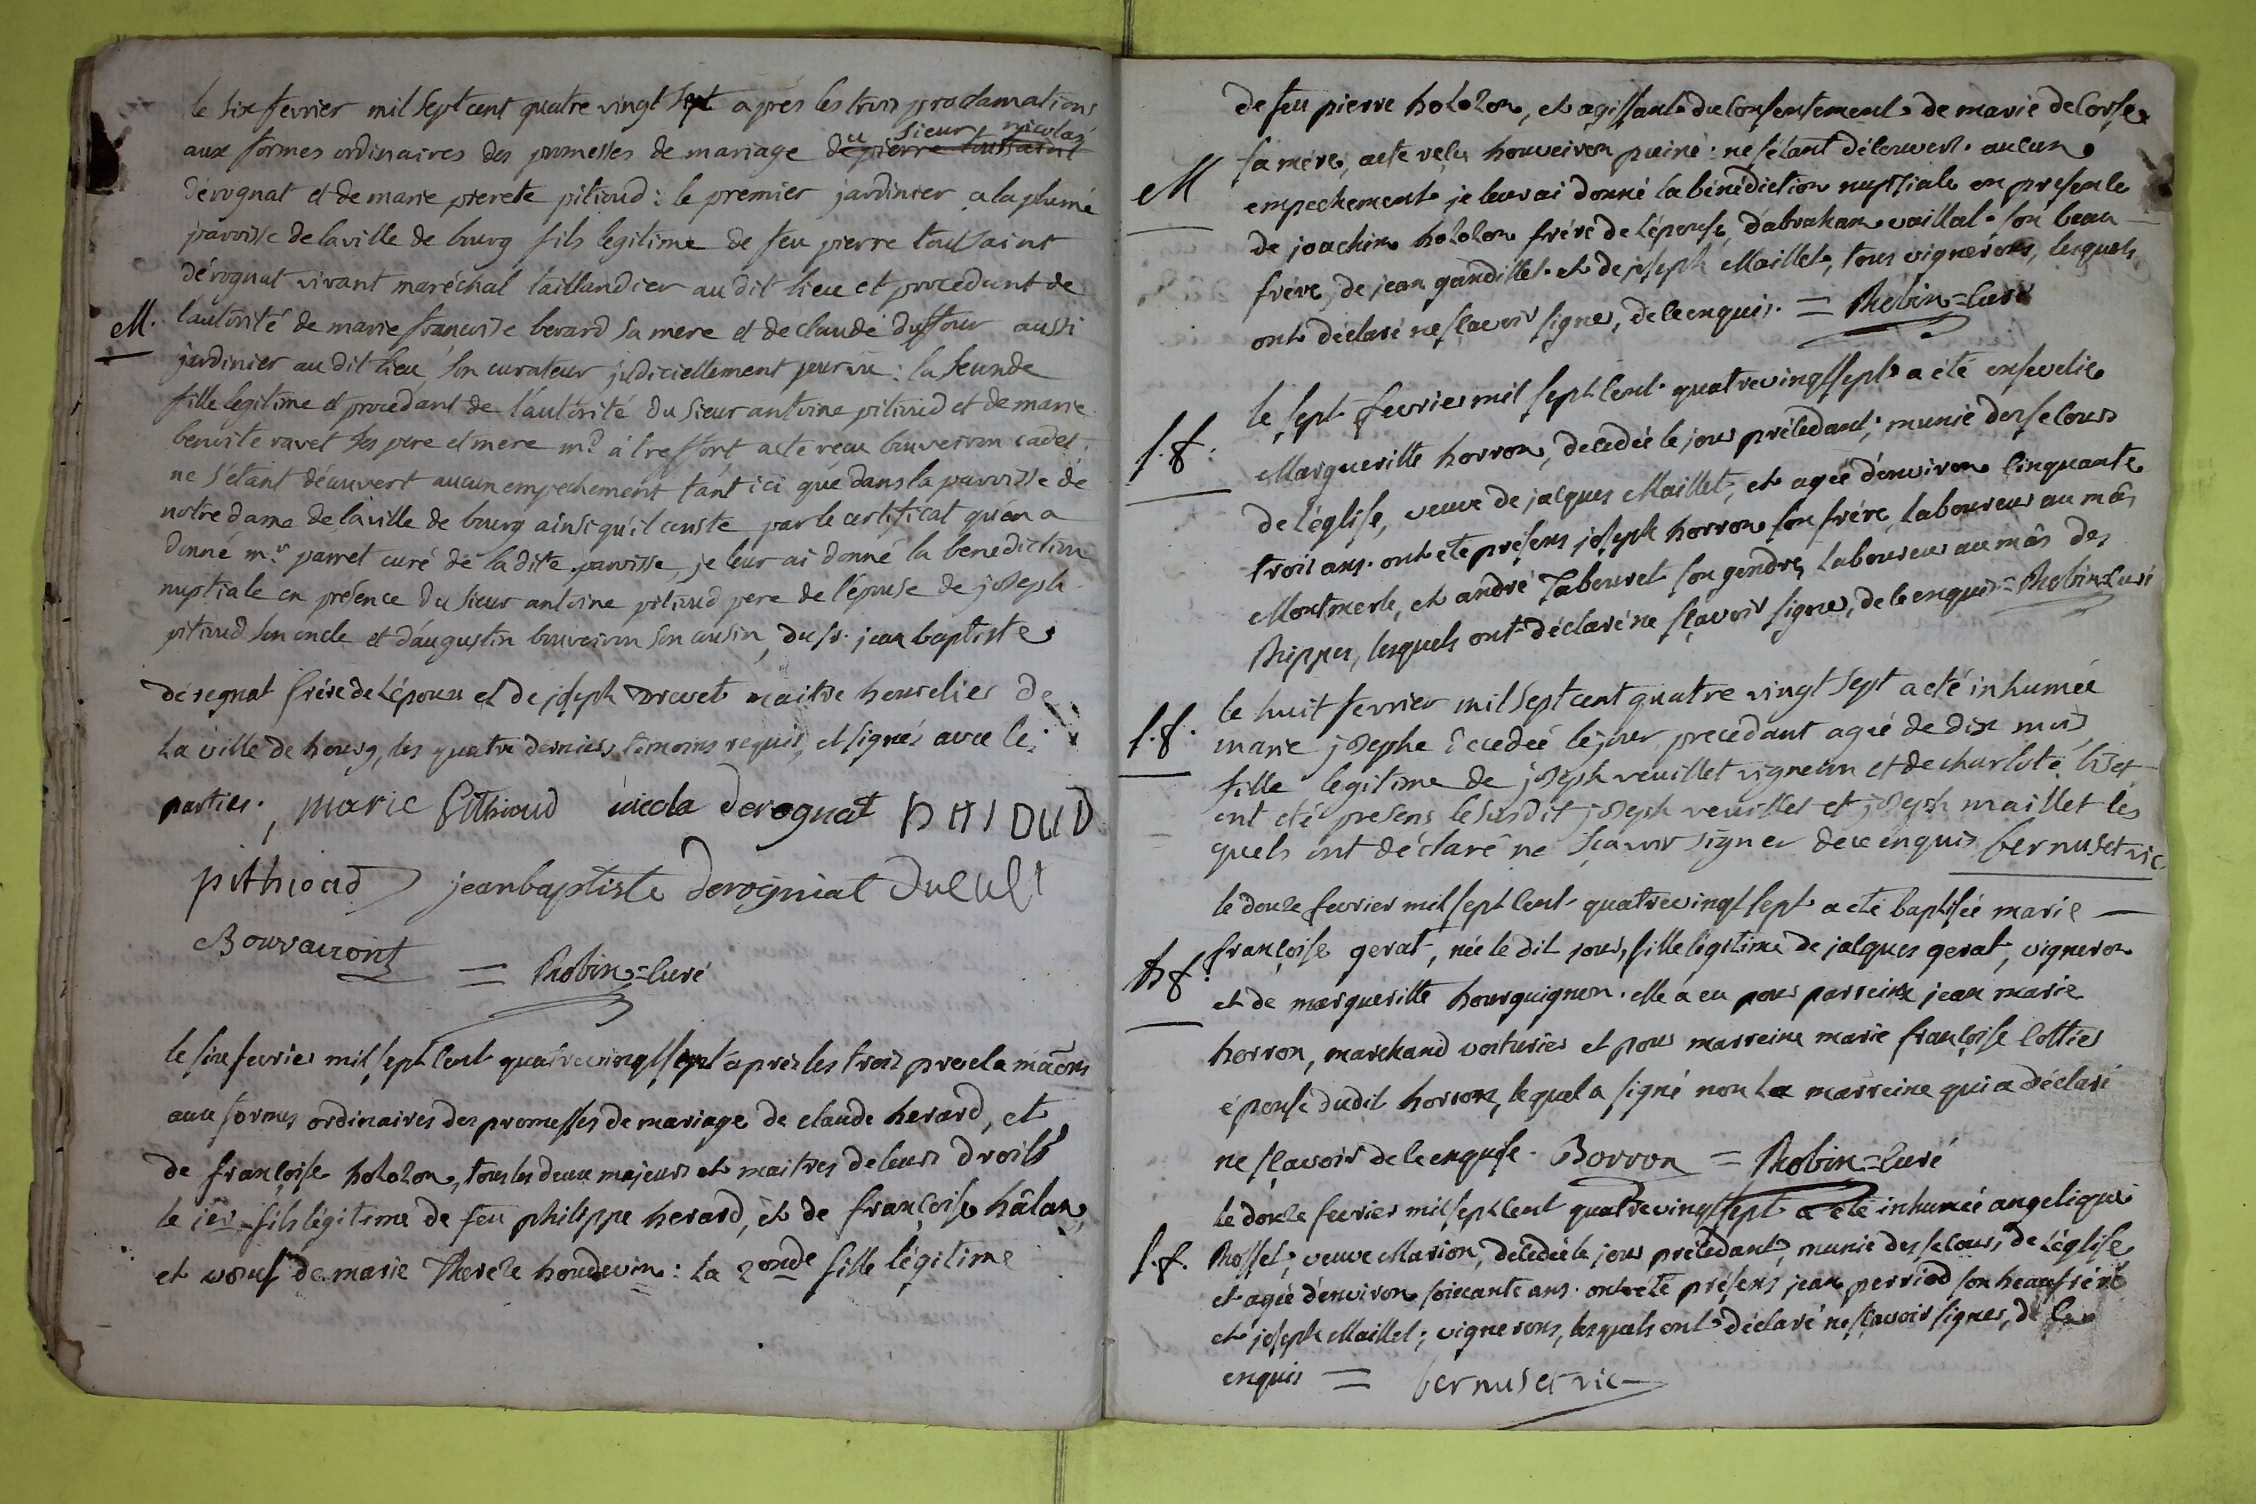 le six fevrier mil sept cent quatre vingt sept aprés les trois proclamations
aux formes ordinaires des promesses de mariage du sieur nicolas
dérognat et de marie pierete pitioud : le premier jardinier a la plume
paroisse de la ville de bourg fils legitime de feu pierre toussaint
dérognat vivant maréchal taillandier au dit lieu et procedant de
M. l'autorité de marie francoise berard sa mere et de claude dufour aussi
jardinier au dit lieu, son curateur judiciellement pourvu : la seconde
fille legitime et procedant de l'autorité du sieur antoine pitioud et de marie
benoite ravet ses pere et mere md. à treffort acte recu bouveiron cadet :
ne s'étant découvert aucun empechement tant ici que dans la paroisse de
notre dame de la ville de bourg ainsi qu'il conste par le certificat qu'en a
donné mr. parret curé de la dite paroisse, je leur ai donné la benediction
nuptiale en présence du sieur antoine pitioud pere de l'épouse de joseph
pitioud son oncle et d'augustin bouveiron son cousin, du sr. jean baptiste
dérognat frére de l'époux et de joseph maitre de
la ville de bourg, les quatre derniers témoins requis, et signés avec les
parties. , marie pithioud nicola derognat
pithioud jean baptiste derogniat
Bouvairont
= Robin = curé
le six fevrier mil sept cent quatre vingt sept aprés les trois proclamaõns
aux formes ordinaires des promesses de mariage de claude berard, et
de françoise bolozon, tous les deux majeurs et maitres de leurs droits
le ier. fils légitime de feu philippe berard, et de françoise
et veuf de marie Thereze boudevin : la 2onde fille légitime
de feu pierre bolozon, et agissant du consentement de marie
sa mére, acte reçu bouveiron puiné : ne s'étant découvert aucun
M empechement je leur ai donné la bénédiction nuptiale en presence
de joachim bolozon frére de l'épouse, d'abraham vaillat son beau
frére, de jean gandillet et de joseph Maillet, tous vignerons, lesquels
ont déclaré ne sçavoir signer, de ce enquis. = Robin = curé
le sept fevrier mil sept cent quatre vingt sept a été ensevelie
s.f. Margueritte borron, decedée le jour précedant, munie des secours
de l'église, veuve de jacques Maillet, et agée d'environ cinquante
trois ans. ont été présens joseph borron son frére, laboureur au mâs
Montmerle, et andré Tabouret son gendre, laboureur au mâs des
Rippes, lesquels ont déclaré ne sçavoir signer, de ce enquis = Robin = curé
le huit fevrier mil sept cent quatre vingt sept a eté inhumée
s.f. marie josephe decedée le jour precedant agée de dix mois
fille legitime de joseph veuillet vigneron et de charlote
ont eté presens le susdit joseph veuillet et joseph maillet les
quels ont déclaré ne sçavoir signer de ce enquis bernuset vic.
le douze fevrier mil sept cent quatre vingt sept a eté baptisée marie
b.f. françoise gerat, née le dit jour, fille légitime de jacques gerat, vigneron
et de margueritte bourguignon. elle a eu pour parrein jean marie
borron, marchand voiturier et pour marreine marie françoise cottier
épouse dudit borron, lequel a signé non la marreine qui a déclaré
ne sçavoir de ce enquise. Borron = Robin = curé
le douze fevrier mil sept cent quatre vingt sept a eté inhumée angelique
s.f. Rosset, veuve Marion, decedée le jour précedant, munie des secours de l'église
et agée d'environ soixante ans. ont été présens jean perriod son beaufrére
et joseph Maillet, vignerons, lesquels ont déclaré ne sçavoir signer, de ce
enquis = bernuset vic